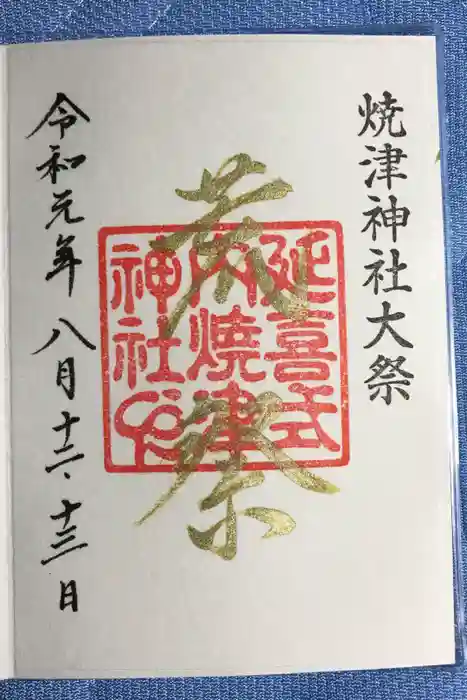 焼津神社大祭
荒祭
延喜式
内焼津
神社印
令和元年 八月十二・十三日